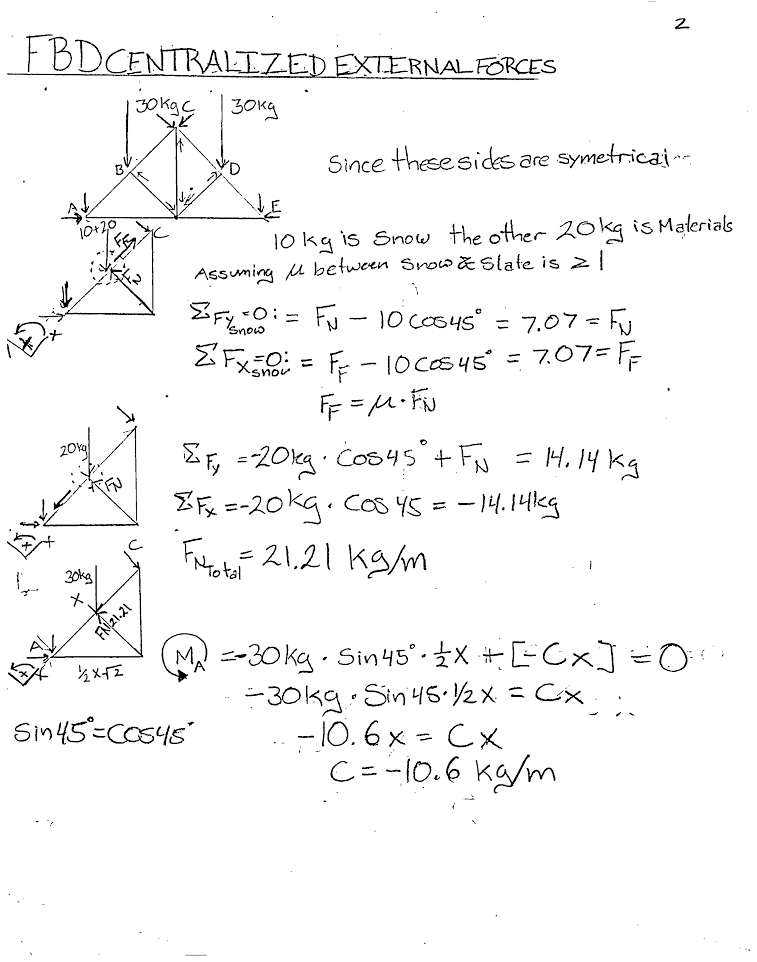 2
FBD CENTRALIZED EXTERNAL FORCES
30kg C 30kg
B D
A E
Since these sides are symetrical--
10+20 C
FF
10 kg is Snow the other 20kg is Materials
Assuming μ between Snow & Slate is ≥ 1
x +
ΣFy=0: = FN - 10 cos45° = 7.07 = FN
snow
ΣFx=0: = FF - 10 cos45° = 7.07 = FF
snow
FF = μ · FN
20kg
FN
+ +
ΣFy = -20kg · Cos45° + FN = 14.14 kg
ΣFx = -20kg · Cos 45 = -14.14kg
FN Total = 21.21 kg/m
C
30kg
X
FN 21.21
A
x +
½ x √2
MA = -30kg · Sin45° · ½X + [-Cx] = 0
-30kg · Sin45 · 1/2x = Cx
Sin45°=Cos45°
-10.6x = Cx
C = -10.6 kg/m